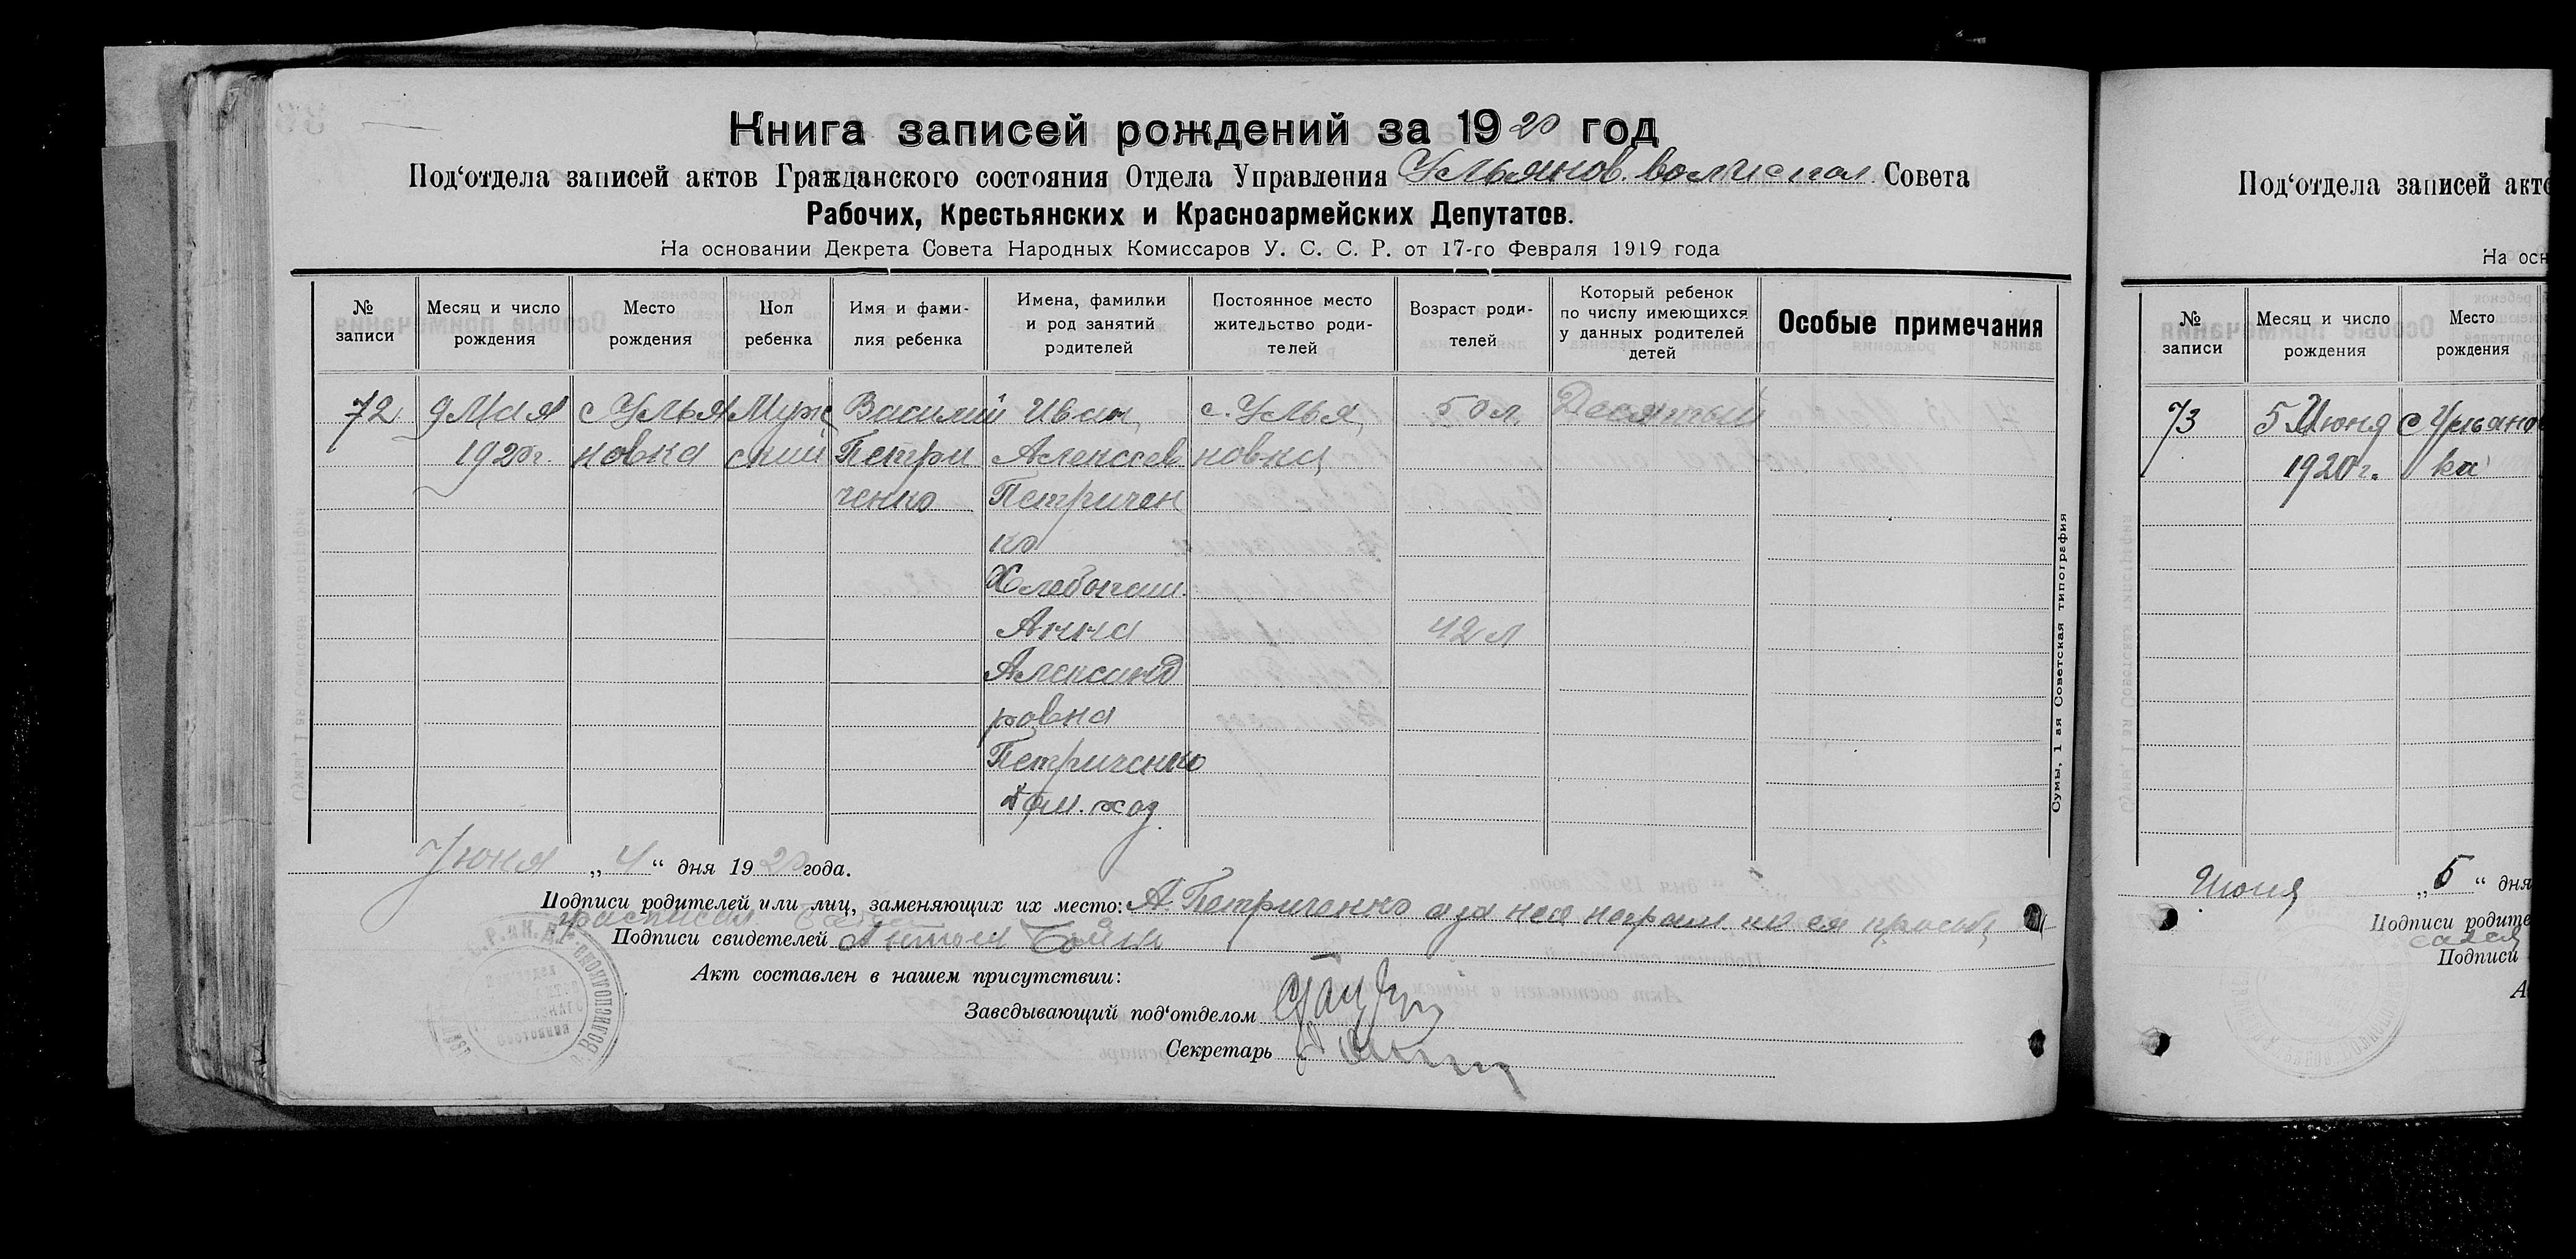 Книга записей рождений за 1920 год
Под‘отдела записей актов Гражданского состояния Отдела Управления Ульянов. волиспол. Совета
Рабочих, Крестьянских и Красноармейских Депутатов.
На основании Декрета Совета Народных Комиссаров У. С. С. Р. от 17-го Февраля 1919 года
№ записи
Месяц и число рождения
Место рождения
Пол ребенка
Имя и фами-
лия ребенка
Имена, фамилии
и род занятий
родителей
Постоянное место
жительство роди-
телей
Возраст роди-
телей
Который ребенок
по числу имеющихся
у данных родителей
детей
Особые примечания
72 9 Мая с Улья Муж Василий Иван с. Улья 50 л. Десятый
1920г. новка ский Петри Алексеев новки
ченко Петричен
ко
Хлебопаш.
Анна 42 л
Александ
ровна
Петриченко
дом. хоз.
Июня „4“ дня 1920 года.
Подписи родителей или лиц, заменяющих их место: А Петриченко а за нея неграм. по ея просьб
расписал
Подписи свидетелей Антон
Акт составлен в нашем присутствии:
Заведывающий под‘отделом
Секретарь
Сумы, 1 ая Советская типография
Под‘отдела записей акто
На осн
№ записи
Месяц и число рождения
Место рождения
73 5 Июня с Ульянов
1920 г. ка
Июня „5“ дня
Подписи родите
Подписи
А